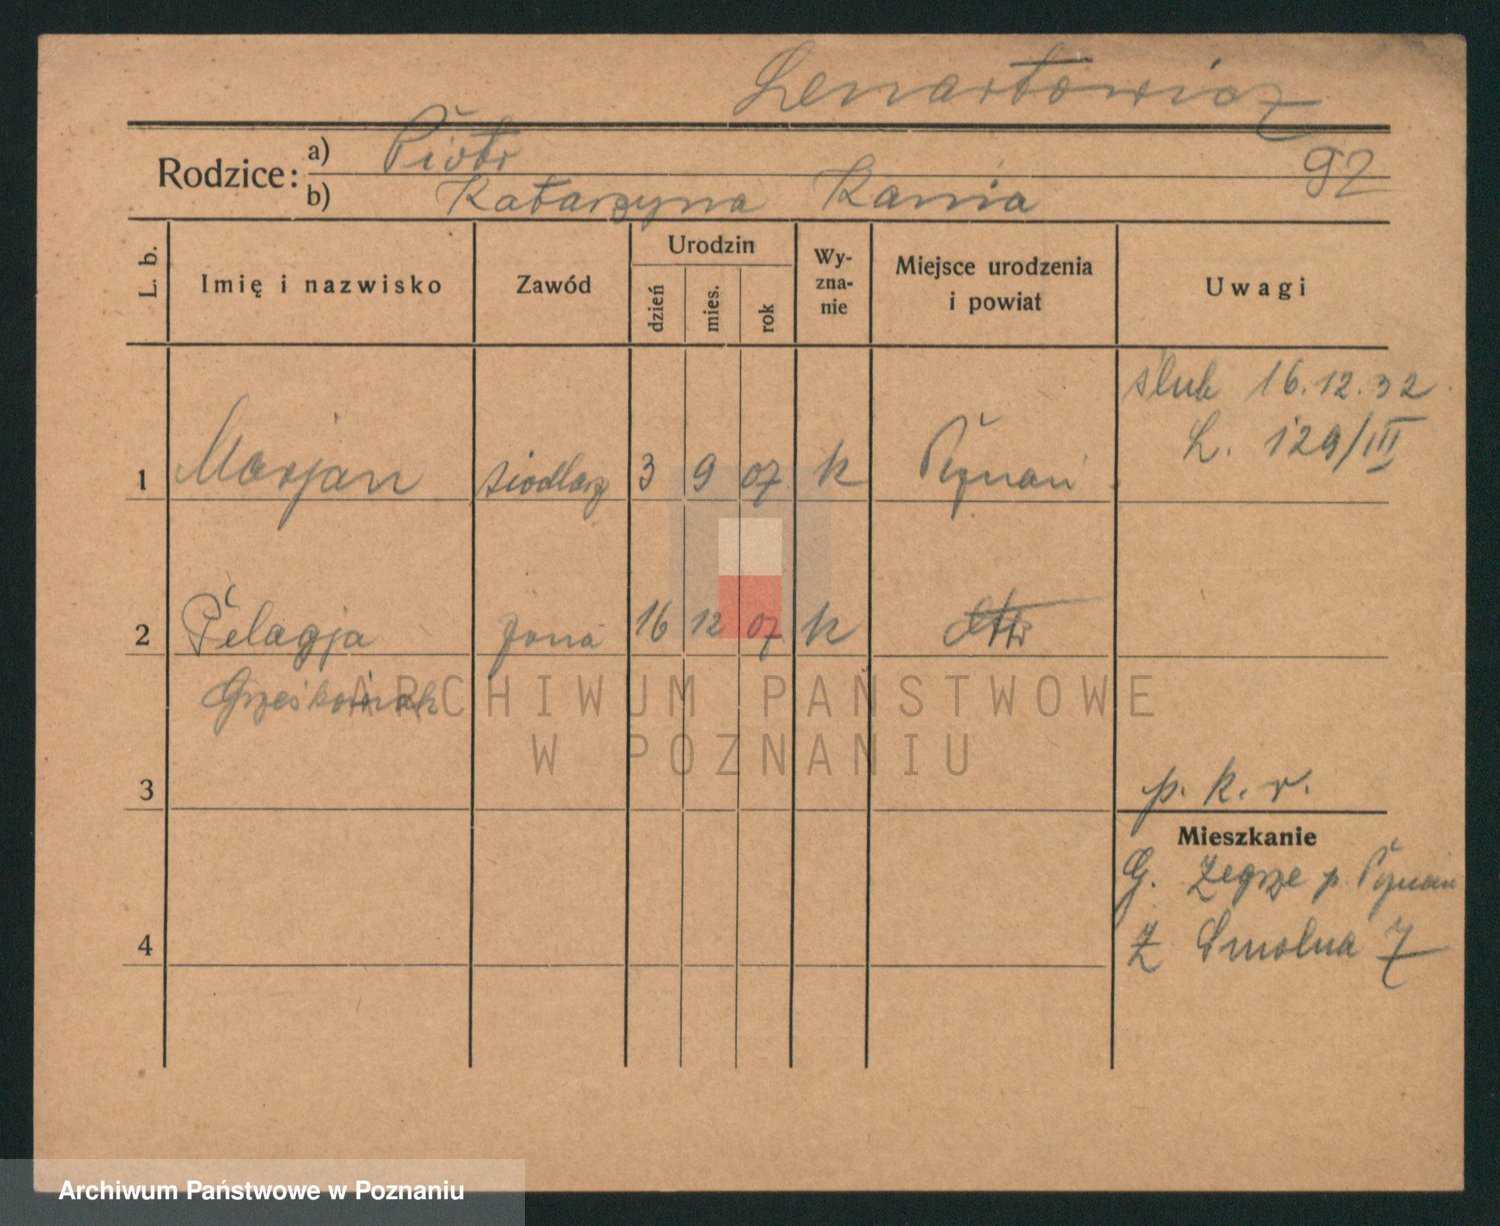 Lenartowicz
Rodzice: a) Piotr
b) Katarzyna Kania 92
L. b. Imię i nazwisko Zawód Urodzin dzień mies. rok Wy- zna- nie Miejsce urodzenia i powiat Uwagi
ślub 16.12.32
L. 129/III
1 Marjan siodlarz 3 9 07 k
2 Pelagja żona 16 12 07 k
Grześkowiak
ARCHIWUM PAŃSTWOWE
W POZNANIU
3 p. k. r.
Mieszkanie
G. Zegrze p.
4 Z Smolna 7
Archiwum Państwowe w Poznaniu